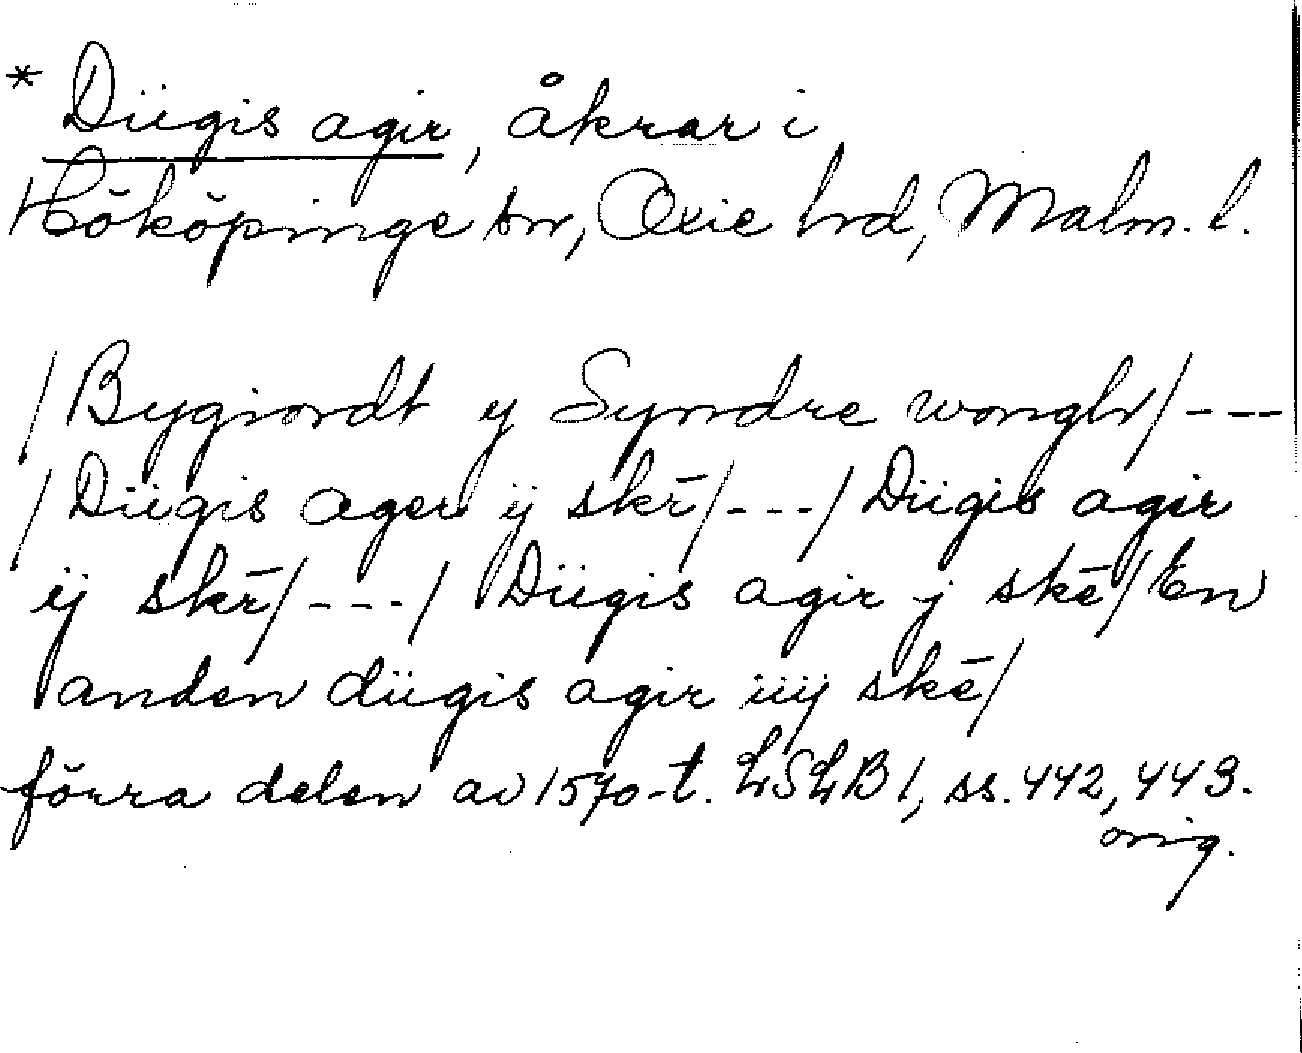 * Dügis agir, åkrar i
Hököpinge sn, Oxie hd, Malm. l.
/Bygiordt y Syndre wongh/---
/Dügis ager ij skr̄/---/Dügis agir
ij skr̄/---/Dügis agir j skē/En
anden dügis agir iiij skē/
förra delen av 1570-t. LSLB 1, ss. 442, 443.
orig.